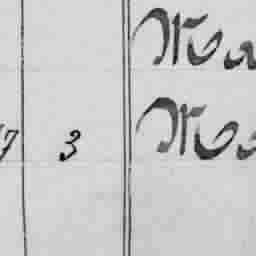 Ma
7 3 Ma